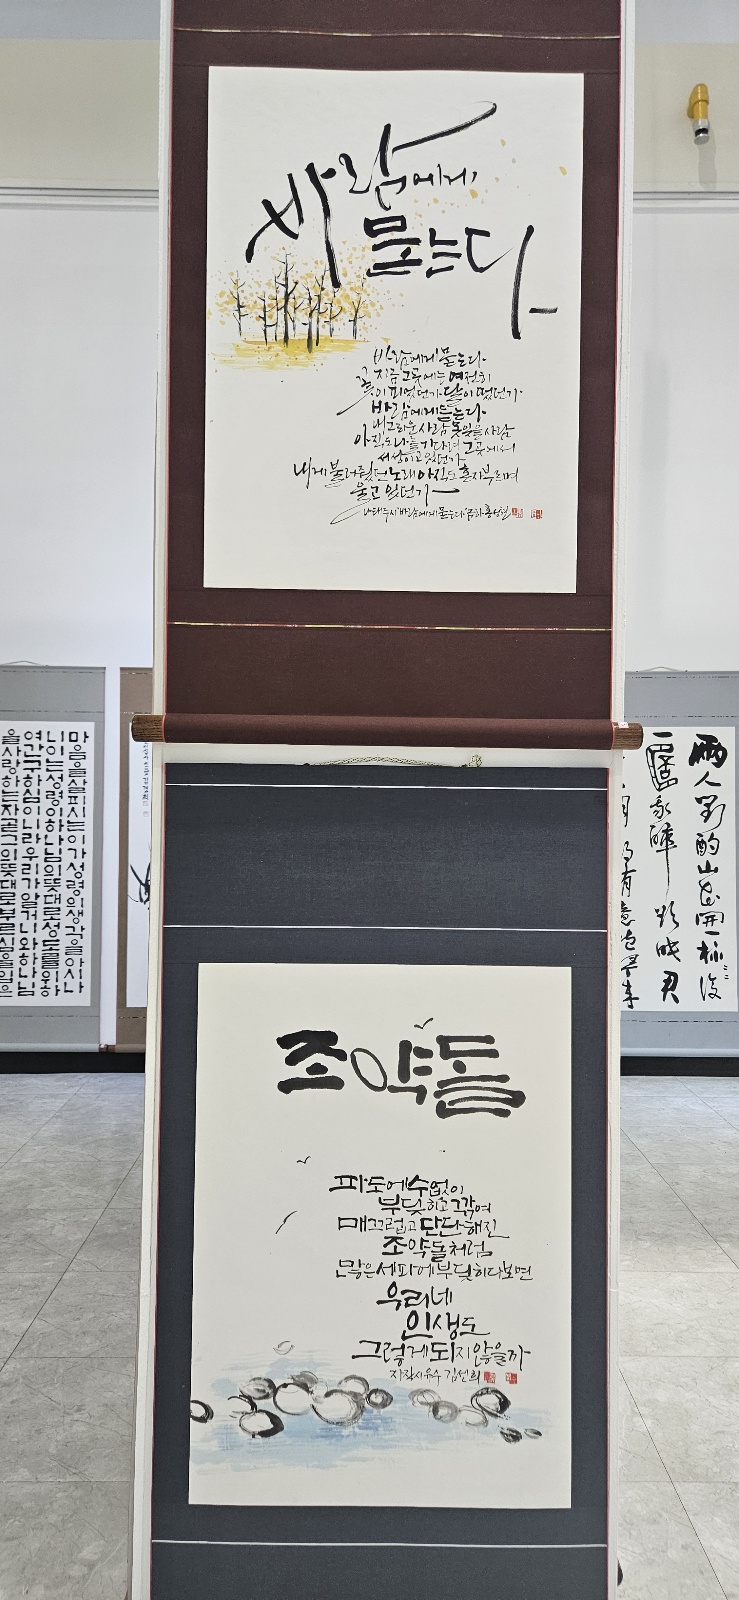 바람에게
묻는다
바람에게 묻는다
지금 그곳에는 여전히
꽃이 피었던가 달이 떴던가
바람에게 듣는다
내 그리운 사람 못 잊을 사람
아직도 나를 기다려 그곳에서
서성이고 있던가
내게 불러줬던 노래 아직도 혼자 부르며
울고 있던가
나태주 시 바람에게 묻는다
조약돌
파도에 수없이
부딪히고 깎여
매끄럽고 단단해진
조약돌처럼
많은 세파에 부딪히다보면
우리네
인생도
그렇게 되지 않을까
자작시 유수 김선희
마음을살피시는이가성령의생각을아시나
니이는성령이하나님의뜻대로성도를위하
여간구하심이니라우리가알거니와하나님
을사랑하는자곧그의뜻대로부르심을입은
兩人對酌山花開一杯復
一杯我醉欲眠君
有意抱琴來